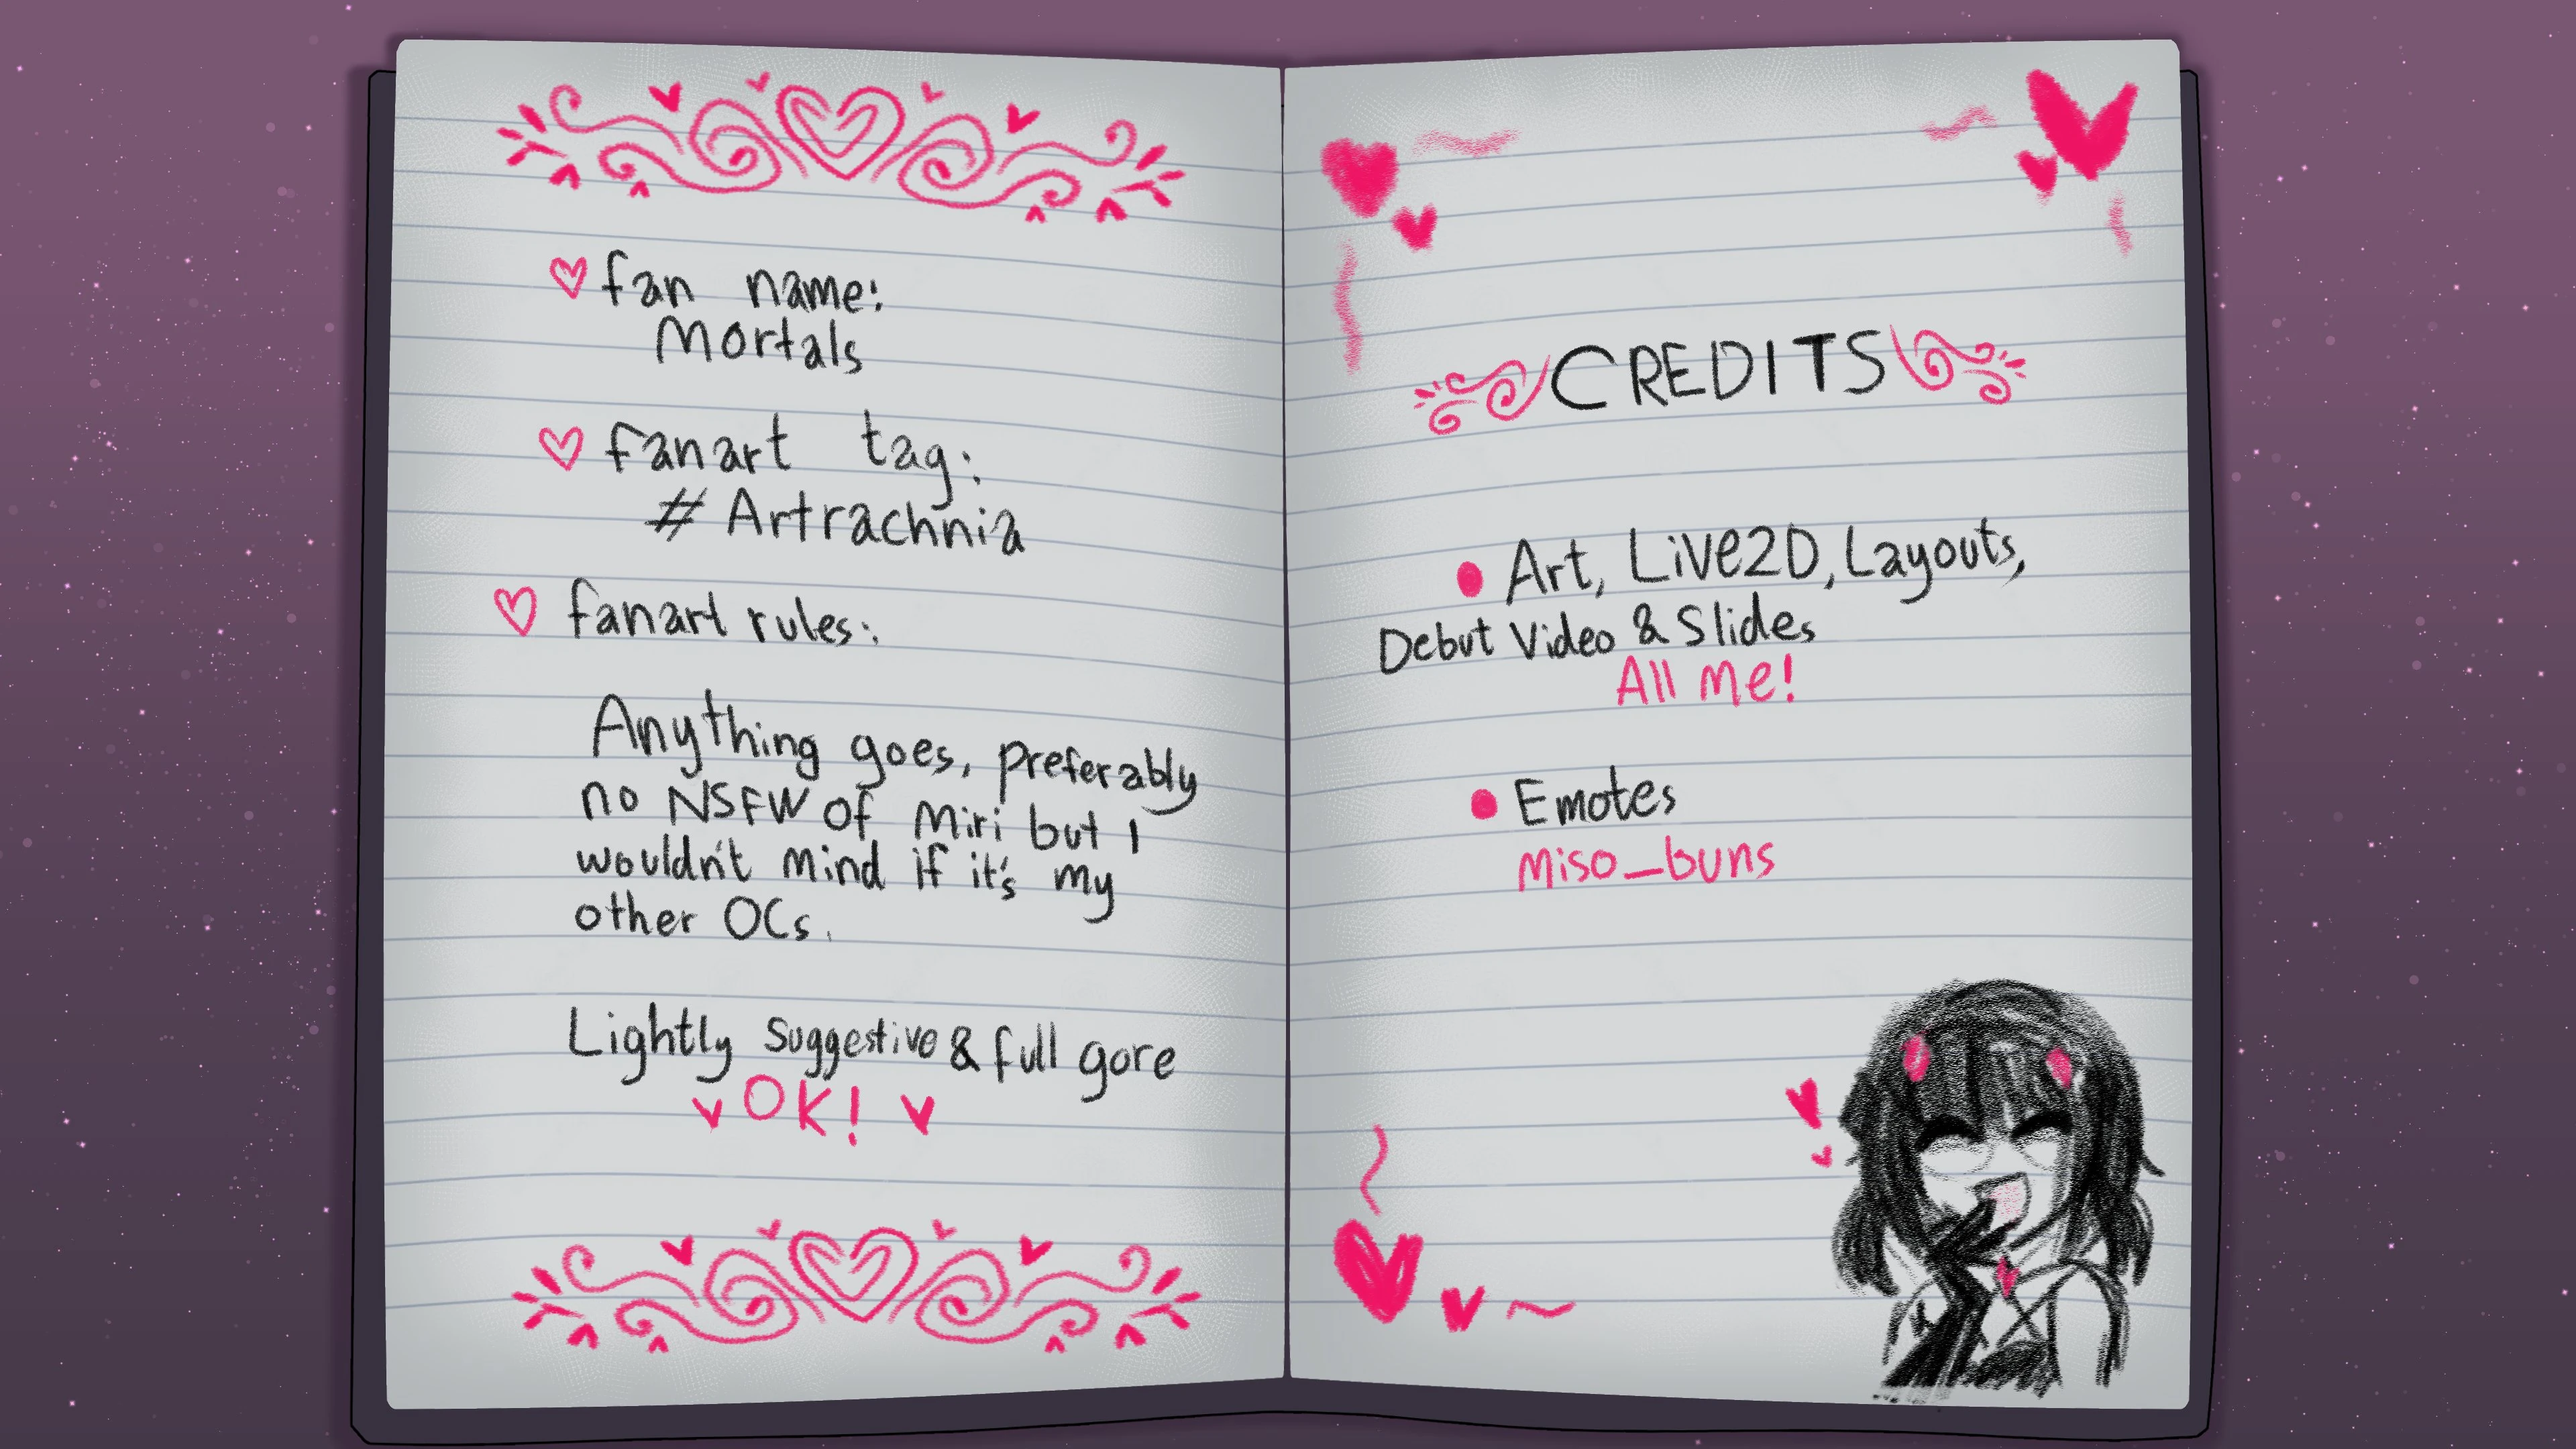 fan name:
Mortals
fanart tag:
# Artrachnia
fanart rules:
Anything goes, preferably
no NSFW of Miri but I
wouldn't mind if it's my
other OCs.
Lightly suggestive & full gore
OK!
CREDITS
Art, Live2D, Layouts,
Debut Video & Slides
All Me!
Emotes
miso_buns